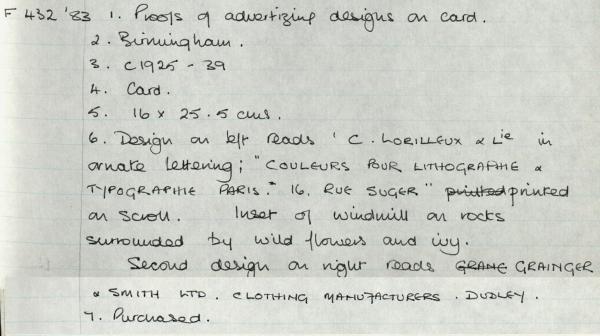 F 432 '83 1. Proofs of advertizing designs on card.
2. Birmingham.
3. c1925-39
4. Card.
5. 16 x 25.5 cms.
6. Design on left reads 'C. LORILLEUX & Cie in
ornate lettering; "COULEURS POUR LITHOGRAPHIE &
TYPOGRAPHIE PARIS." 16, RUE SUGER" printed printed
on scroll. Inset of windmill on rocks
surrounded by wild flowers and ivy.
Second design on right reads GRANE GRAINGER
& SMITH LTD. CLOTHING MANUFACTURERS. DUDLEY.
7. Purchased.